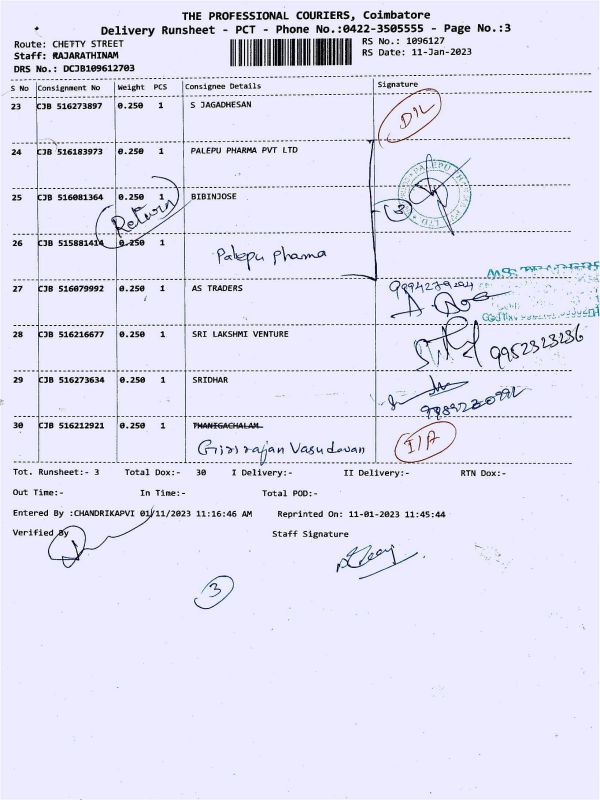 THE PROFESSIONAL COURIERS, Coimbatore
Delivery Runsheet - PCT - Phone No.:0422-3505555 - Page No.:3
Route: CHETTY STREET
RS No.: 1096127
Staff: RAJARATHINAM
RS Date: 11-Jan-2023
DRS No.: DCJB109612703
S No Consignment No Weight PCS Consignee Details Signature
23 CJB 516273897 0.250 1 S JAGADHESAN
D/L
24 CJB 516183973 0.250 1 PALEPU PHARMA PVT LTD
25 CJB 516081364 0.250 1 BIBINJOSE
3
Return
26 CJB 515881414 0.250 1 Palepu Pharma
27 CJB 516079992 0.250 1 AS TRADERS
28 CJB 516216677 0.250 1 SRI LAKSHMI VENTURE
9952323236
29 CJB 516273634 0.250 1 SRIDHAR
30 CJB 516212921 0.250 1 THANIGACHALAM
Girirajan Vasudevan
I/A
Tot. Runsheet:- 3 Total Dox:- 30 I Delivery:- II Delivery:- RTN Dox:-
Out Time:- In Time:- Total POD:-
Entered By :CHANDRIKAPVI 01/11/2023 11:16:46 AM Reprinted On: 11-01-2023 11:45:44
Verified By Staff Signature
3